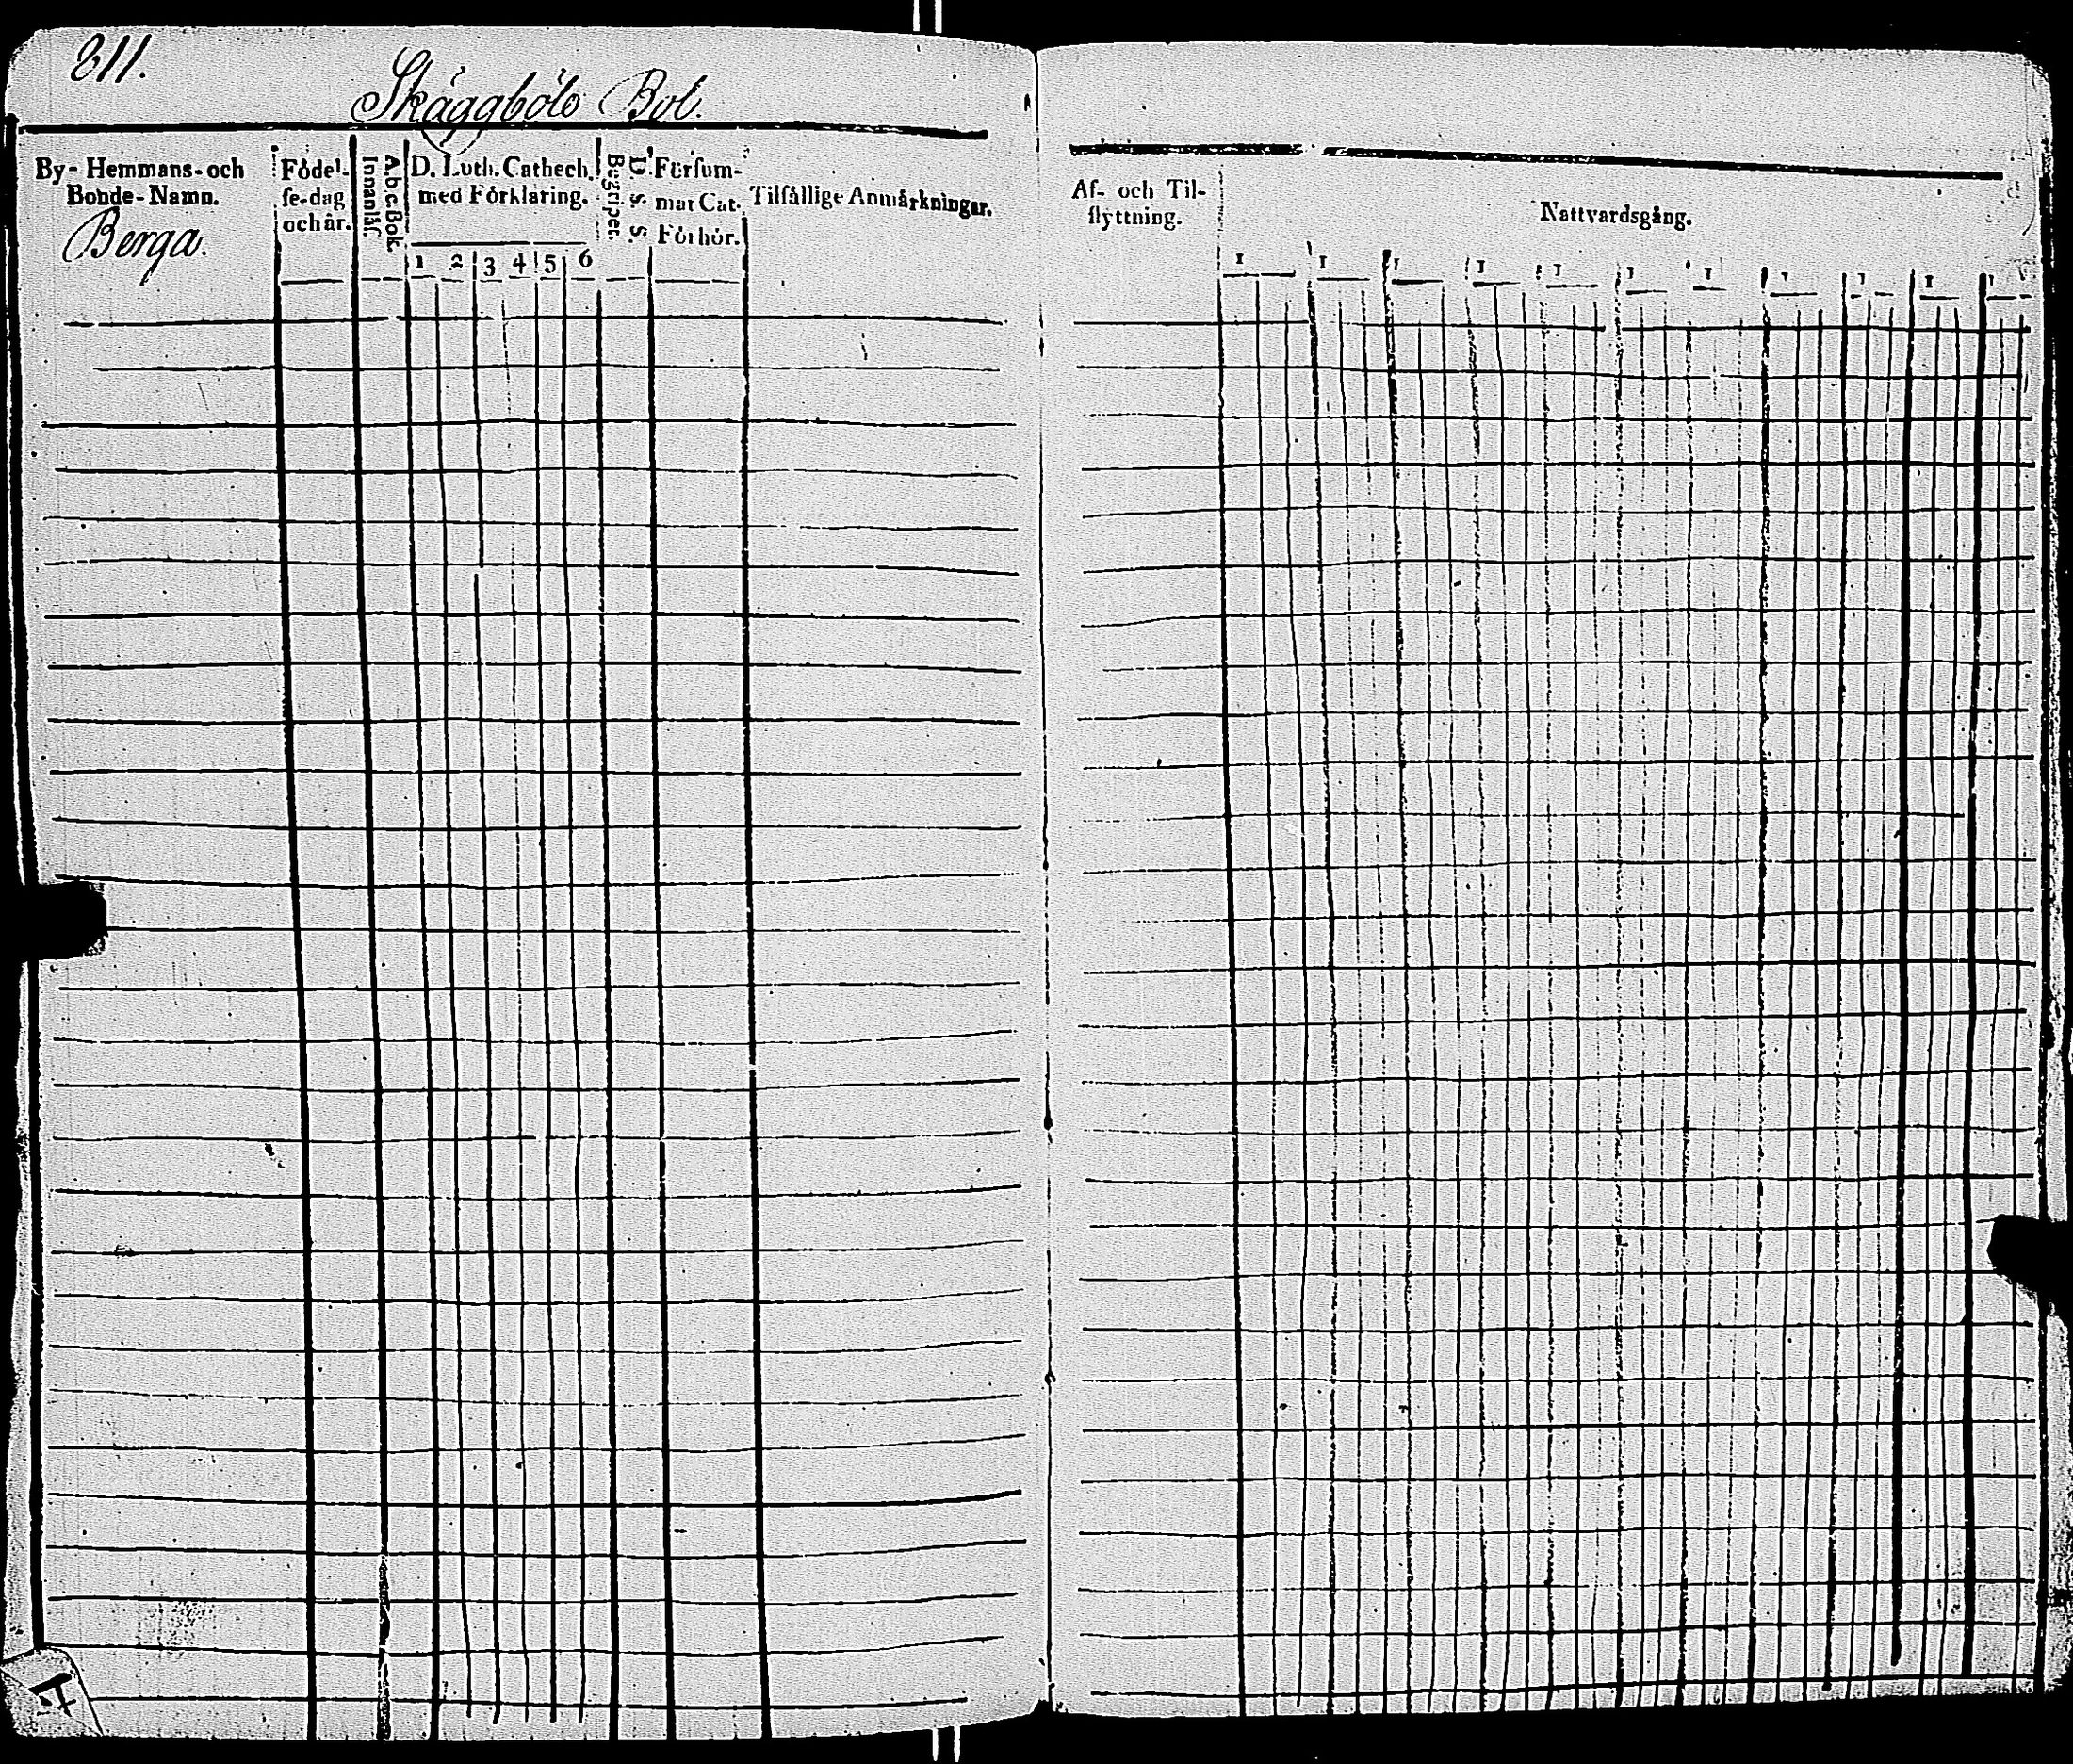 211.
Skäggböle Bol.
By- Hemmans- och
Bonde- Namn.
Berga.
Födel-
se-dag
och år.
Innanläs.
A.b.c Bok.
D. Luth. Cathech.
med Förklaring.
1 2 3 4 5 6
Begriper.
D. S. S. S.
Försum-
mat Cat.
Förhör.
Tilfällige Anmärkningar.
Af- och Til-
flyttning.
Nattvardsgång.
1 1 1 1 1 1 1 1 1 1 1